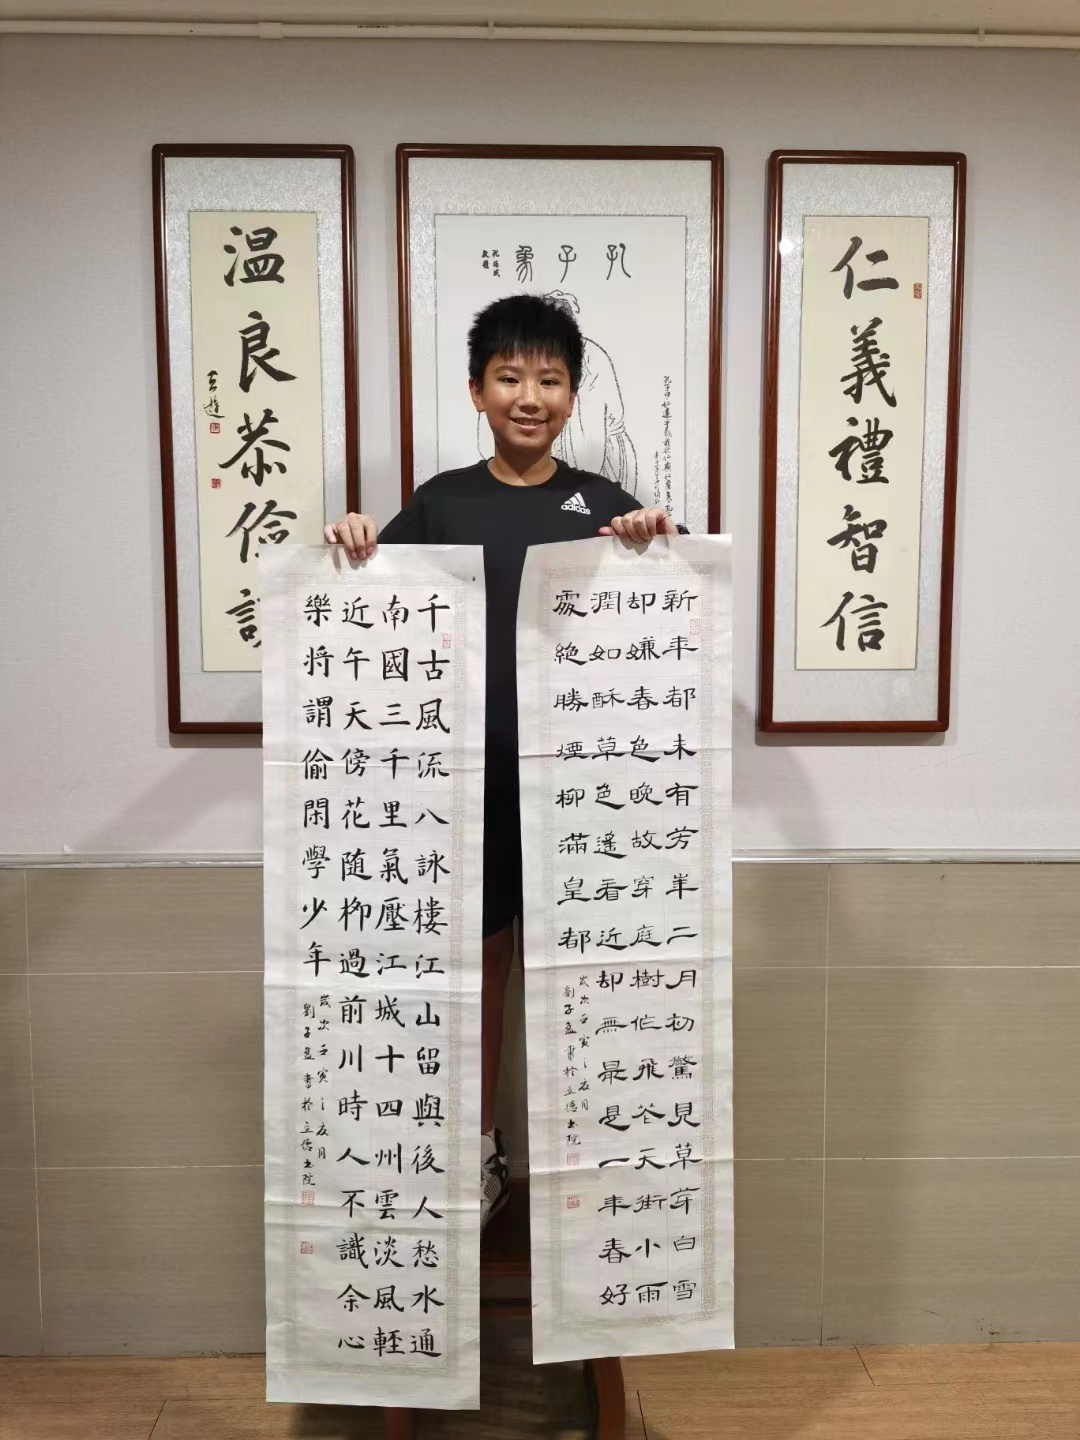 仁義禮智信
孔子象
温良恭儉
adidas
新年都未有芳華二月初驚見草芽白雪
却嫌春色晚故穿庭樹作飛花天街小雨
潤如酥草色遙看近却無最是一年春好
處絶勝煙柳滿皇都
歲次壬寅之夏月
劉子書於立德書院
千古風流八詠樓江山留與後人愁水通
南國三千里氣壓江城十四州雲淡風輕
近午天傍花随柳過前川時人不識余心
樂將謂偷閑學少年
歲次壬寅之夏月
劉子書於立德書院